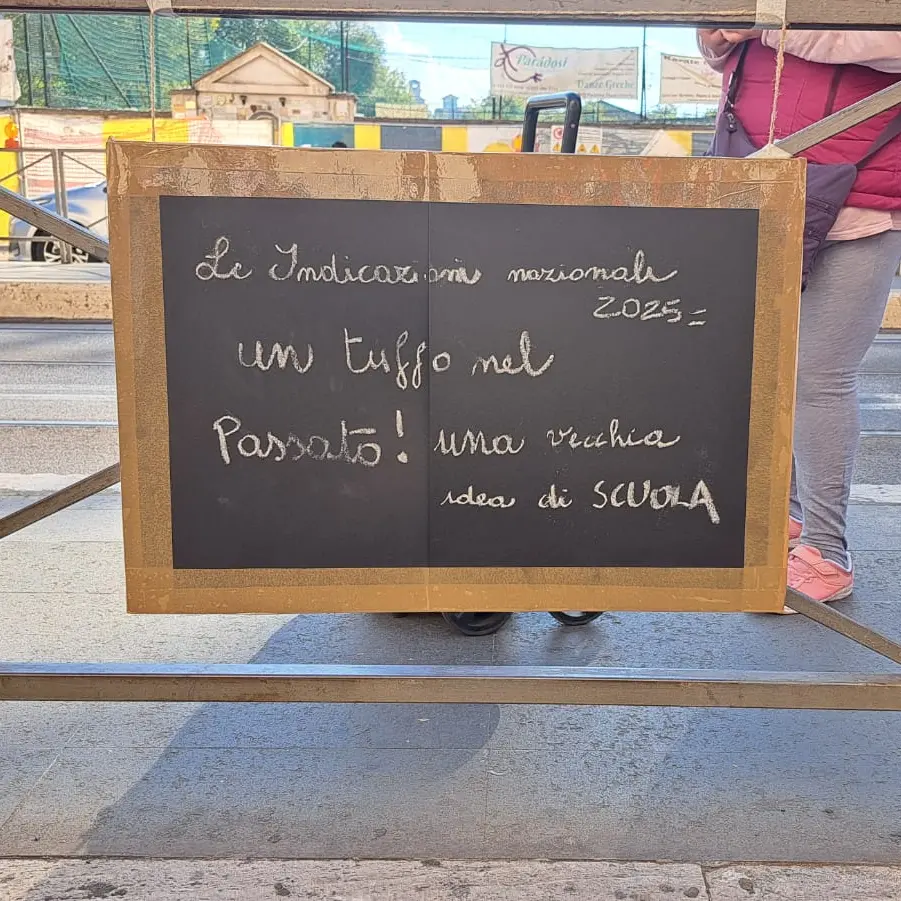 Parádosi
Danze Greche
Le Indicazioni nazionali
2025=
un tuffo nel
Passato! una vecchia
idea di SCUOLA